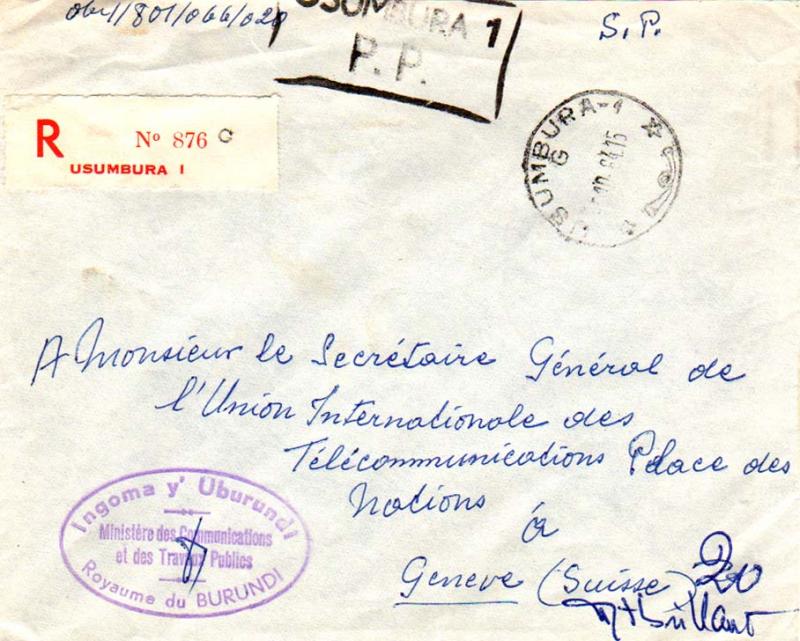 S.P.
USUMBURA 1
P. P.
R
Nº 876 C
USUMBURA 1
USUMBURA-1
G
A Monsieur le Secrétaire Général de
l'Union Internationale des
Télécommunications Palace des
Nations
à
Geneve (Suisse)
20
Ingoma y' Uburundi
Ministère des Communications
et des Travaux Publics
Royaume du BURUNDI